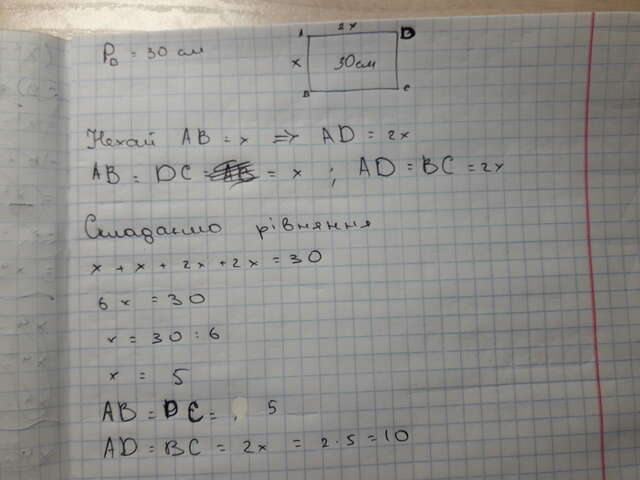 P▱ = 30 см
A 2x D
x 30см
B C
Нехай AB = x => AD = 2x
AB = DC = = x ; AD = BC = 2x
Складаємо рівняння
x + x + 2x + 2x = 30
6x = 30
x = 30 : 6
x = 5
AB = DC = 5
AD = BC = 2x = 2·5 = 10